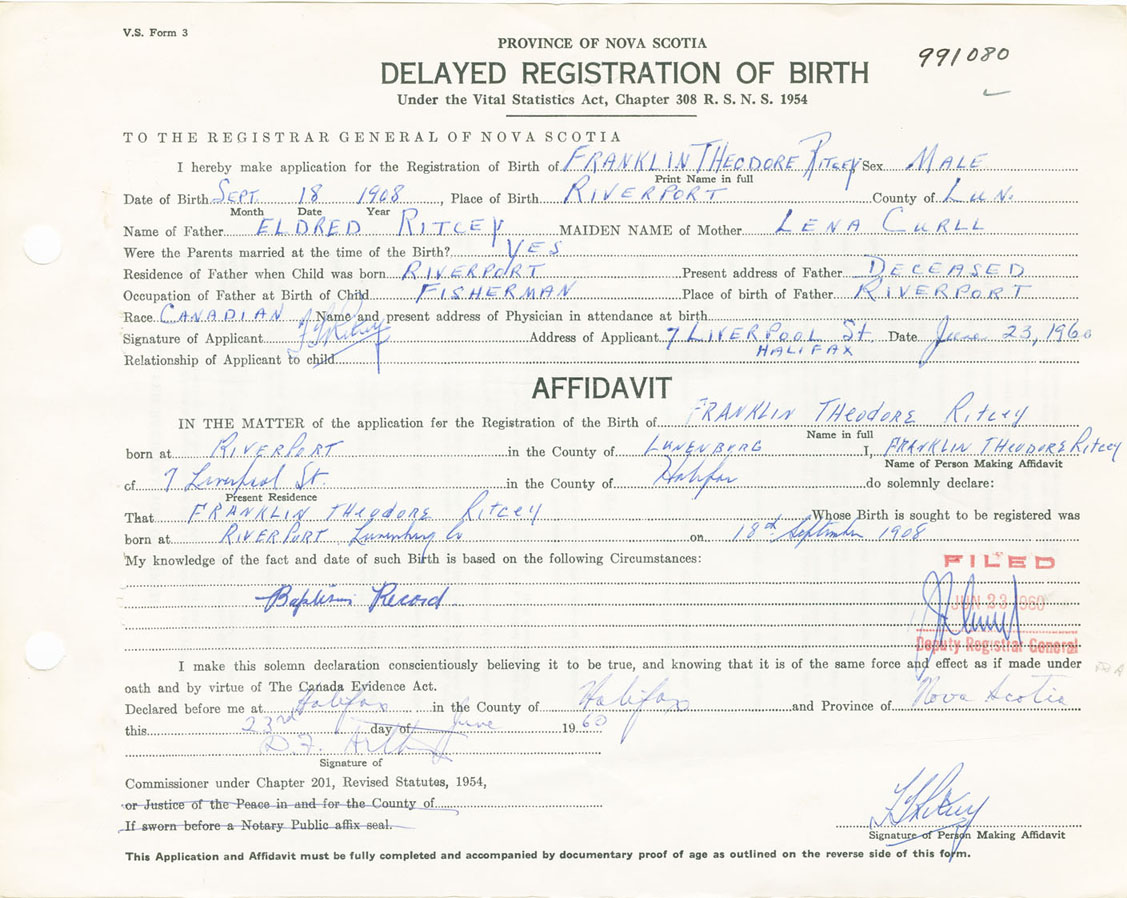 V.S. Form 3
PROVINCE OF NOVA SCOTIA
991080
DELAYED REGISTRATION OF BIRTH
Under the Vital Statistics Act, Chapter 308 R. S. N. S. 1954
TO THE REGISTRAR GENERAL OF NOVA SCOTIA
I hereby make application for the Registration of Birth of FRANKLIN THEODORE RITCEY Sex MALE
Print Name in full
Date of Birth SEPT. 18 1908, Place of Birth RIVERPORT County of LUN.
Month Date Year
Name of Father ELDRED RITCEY MAIDEN NAME of Mother LENA CURLL
Were the Parents married at the time of the Birth? YES
Residence of Father when Child was born RIVERPORT Present address of Father DECEASED
Occupation of Father at Birth of Child FISHERMAN Place of birth of Father RIVERPORT
Race CANADIAN Name and present address of Physician in attendance at birth
Signature of Applicant F T Ritcey Address of Applicant 7 LIVERPOOL St. Date June 23, 1960
HALIFAX
Relationship of Applicant to child
AFFIDAVIT
IN THE MATTER of the application for the Registration of the Birth of FRANKLIN THEODORE RITCEY
Name in full
born at RIVERPORT in the County of LUNENBURG I, FRANKLIN THEODORE RITCEY
Name of Person Making Affidavit
of 7 Liverpool St. in the County of Halifax do solemnly declare:
Present Residence
That FRANKLIN THEODORE RITCEY Whose Birth is sought to be registered was
born at RIVERPORT Lunenburg Co on 18th September 1908
My knowledge of the fact and date of such Birth is based on the following Circumstances:
FILED
Baptism Record
JUN 23 1960
Deputy Registrar General
I make this solemn declaration conscientiously believing it to be true, and knowing that it is of the same force and effect as if made under
oath and by virtue of The Canada Evidence Act.
Declared before me at Halifax in the County of Halifax and Province of Nova Scotia
this 23rd day of June 1960
D.F.
Signature of
Commissioner under Chapter 201, Revised Statutes, 1954,
or Justice of the Peace in and for the County of
If sworn before a Notary Public affix seal.
F T Ritcey
Signature of Person Making Affidavit
This Application and Affidavit must be fully completed and accompanied by documentary proof of age as outlined on the reverse side of this form.